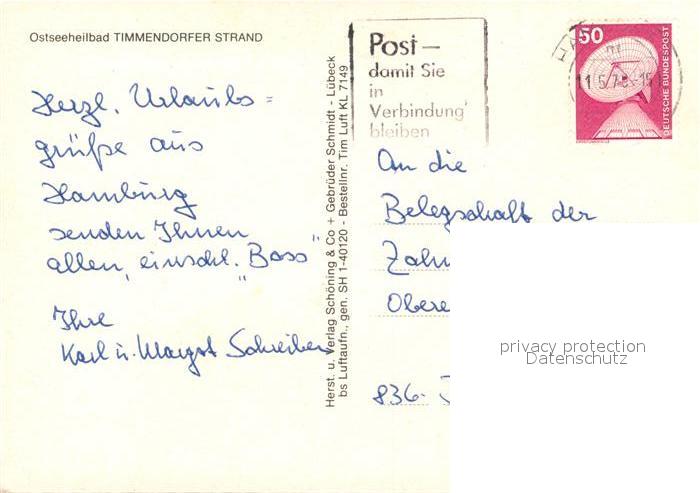 Ostseeheilbad TIMMENDORFER STRAND
Herzl. Urlaubs=
grüße aus
Hamburg
senden Ihnen
allen, einschl. „Boss"
Ihre
Karl u. Margot Schreiber
Herst. u. Verlag Schöning & Co + Gebrüder Schmidt - Lübeck
bs Luftaufn., gen. SH 1-40120 - Bestellnr. Tim Luft KL 7149
Post –
damit Sie
in
Verbindung
bleiben
50
DEUTSCHE BUNDESPOST
An die
Belegschaft der
Zahn
Obere
836-
privacy protection
Datenschutz